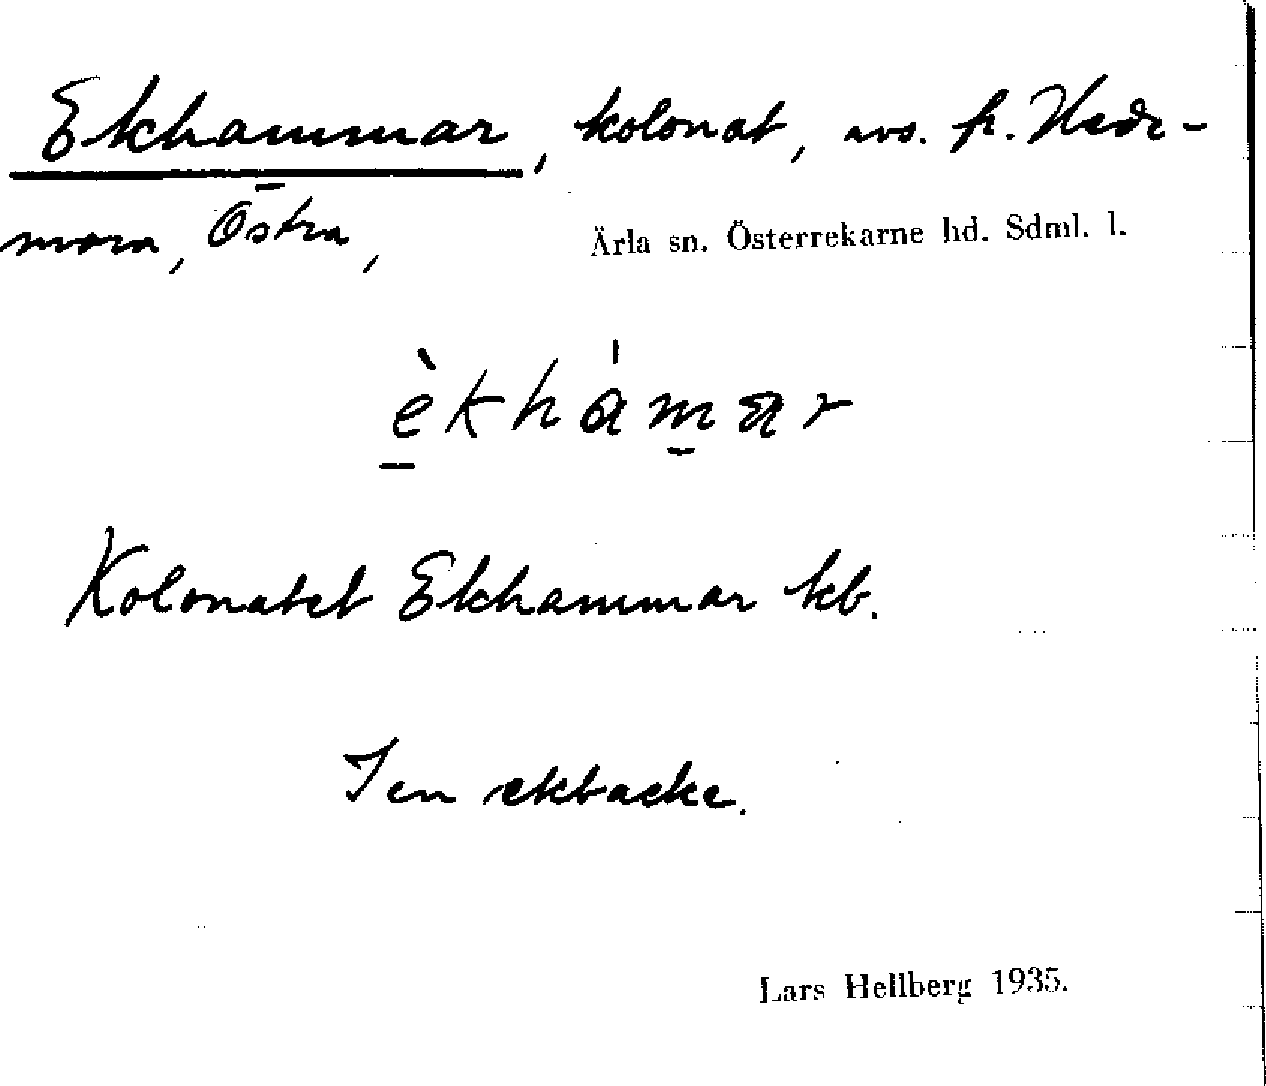 Ekhammar, kolonat, avs. fr. Hede-
mora, Östra,
Ärla sn. Österrekarne hd. Sdml. l.
èkhámar
Kolonatet Ekhammar kb.
I en ekbacke.
Lars Hellberg 1935.